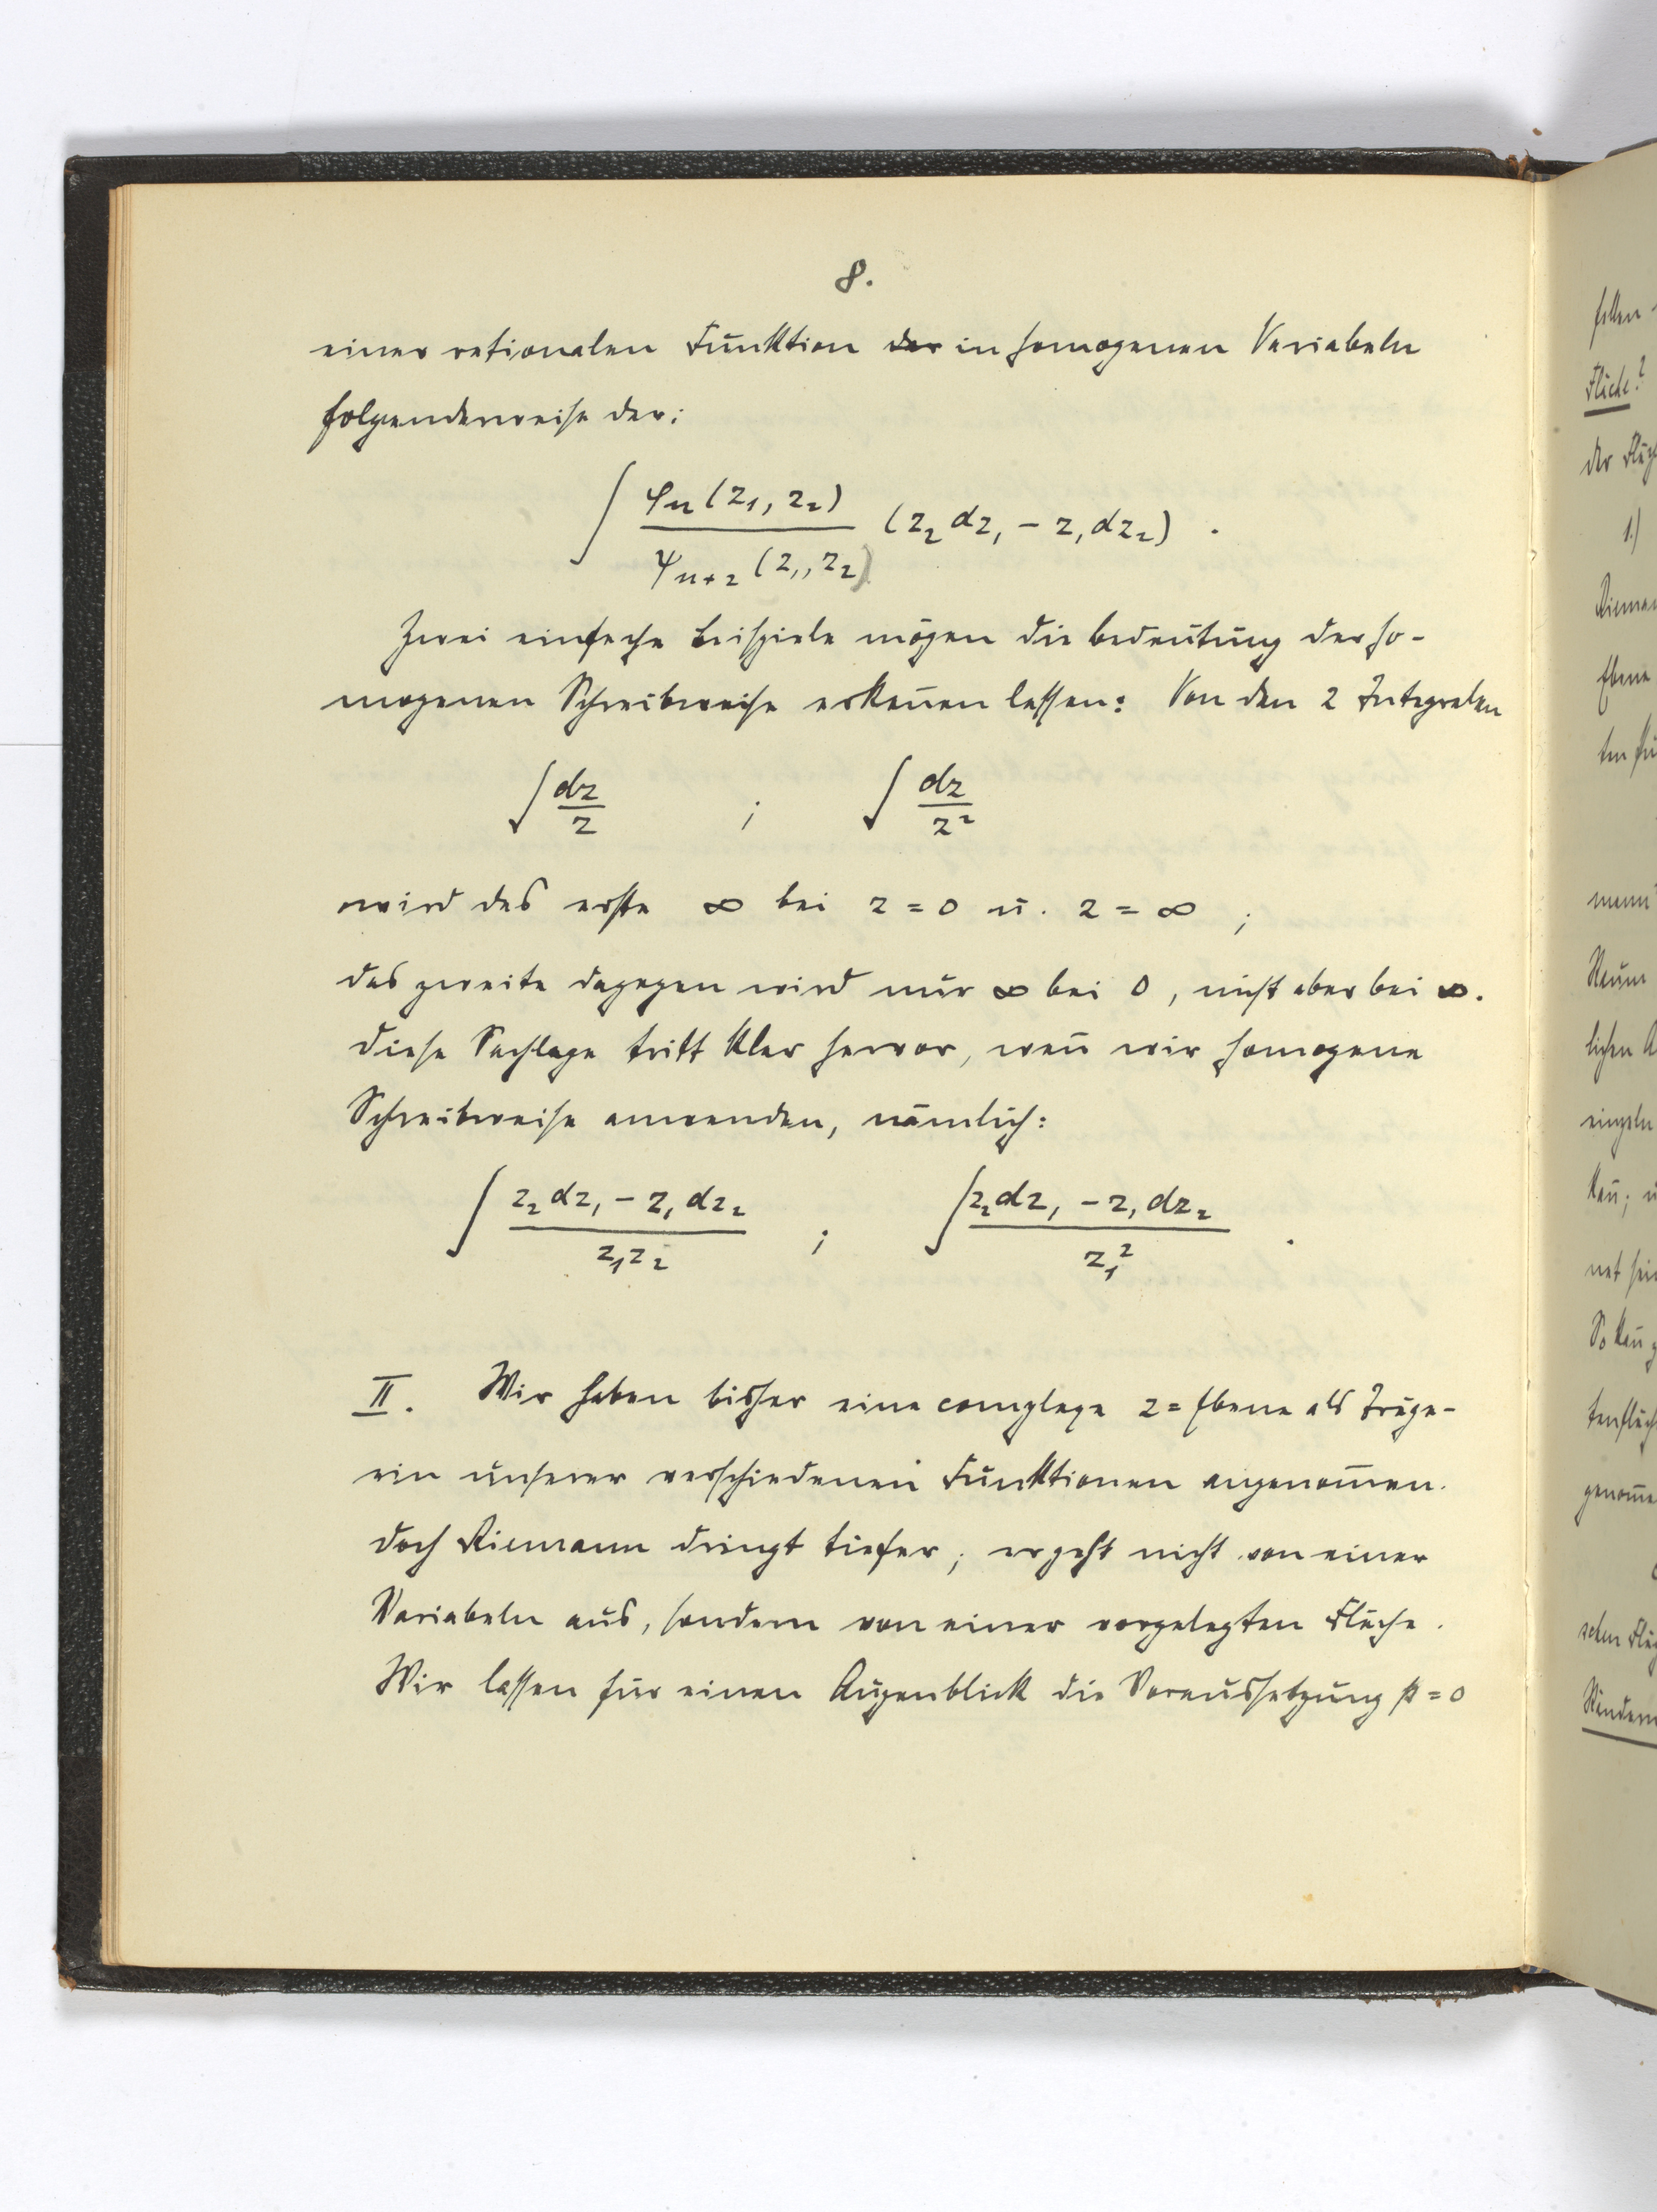 8.
einer rationalen Funktion der in homogenen Variabeln
folgenderweise dar:
∫ φn (z1, z2) / ψn+2 (z1, z2) (z2 dz1 - z1 dz2) .
Zwei einfache Beispiele mögen die Bedeutung der ho-
mogenen Schreibweise erkeñen lassen: Von den 2 Integralen
∫ dz / z ; ∫ dz / z²
wird das erste ∞ bei z = 0 u. z = ∞ ;
das zweite dagegen wird nur ∞ bei 0, nicht aber bei ∞.
Diese Sachlage tritt klar hervor, weñ wir homogene
Schreibweise anwenden, nämlich:
∫ z2 dz1 - z1 dz2 / z1 z2 ; ∫ z2 dz1 - z1 dz2 / z1² .
II. Wir haben bisher eine complexe z = Ebene als Träge-
rin unserer verschiedenen Funktionen angenom̅en.
Doch Riemann dringt tiefer; er geht nicht von einer
Variabeln aus, sondern von einer vorgelegten Fläche.
Wir lassen für einen Augenblick die Voraussetzung p = 0
Fläche?
1.)
Ebene
lichen
einzeln